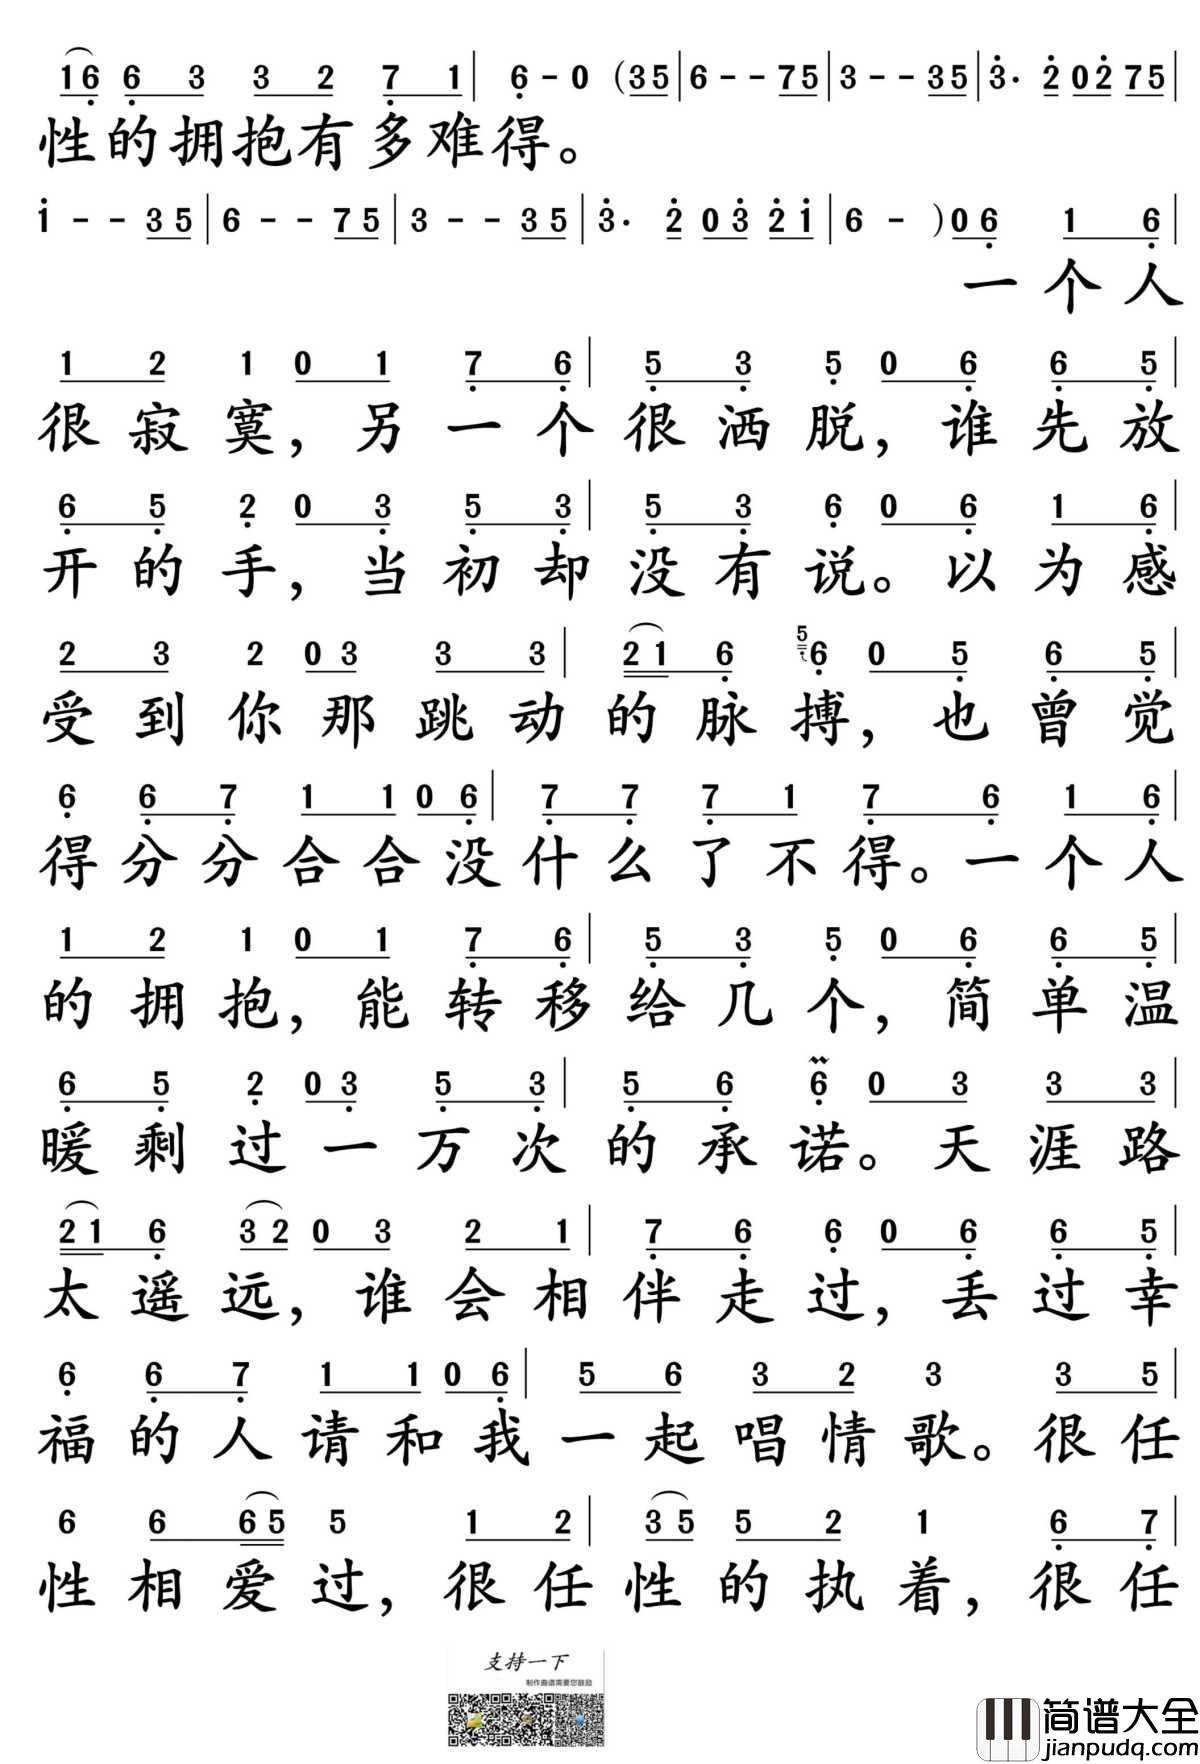 16 6 3 3 2 7 1 | 6 - 0 (35 | 6 - - 75 | 3 - - 35 | 3· 2 02 75 |
性的拥抱有多难得。
1 - - 35 | 6 - - 75 | 3 - - 35 | 3· 2 03 21 | 6 - )06 1 6 |
一个人
1 2 1 0 1 7 6 | 5 3 5 0 6 6 5 |
很寂寞,另一个很洒脱,谁先放
6 5 2 0 3 5 3 | 5 3 6 0 6 1 6 |
开的手,当初却没有说。以为感
2 3 2 03 3 3 | 21 6 5 6 0 5 6 5 |
受到你那跳动的脉搏,也曾觉
6 6 7 1 1 06 | 7 7 7 1 7 6 1 6 |
得分分合合没什么了不得。一个人
1 2 1 0 1 7 6 | 5 3 5 0 6 6 5 |
的拥抱,能转移给几个,简单温
6 5 2 03 5 3 | 5 6 6 0 3 3 3
暖剩过一万次的承诺。天涯路
21 6 32 0 3 2 1 | 7 6 6 0 6 6 5 |
太遥远,谁会相伴走过,丢过幸
6 6 7 1 1 06 | 5 6 3 2 3 3 5 |
福的人请和我一起唱情歌。很任
6 6 65 5 1 2 | 35 5 2 1 6 7 |
性相爱过,很任性的执着,很任
支持一下
制作曲谱需要您鼓励
简谱大全
jianpudq.com